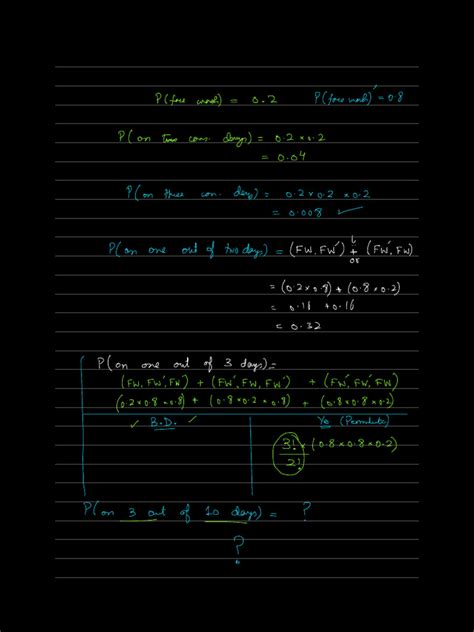 P(face wash) = 0.2 P(face wash)' = 0.8
P(on two cons. days) = 0.2 x 0.2
= 0.04
P(on three con. days) = 0.2 x 0.2 x 0.2
= 0.008 ✓
P(on one out of two days) = (FW, FW') + (FW', FW)
or
= (0.2 x 0.8) + (0.8 x 0.2)
= 0.16 + 0.16
= 0.32
P(on one out of 3 days) =
(FW, FW', FW') + (FW', FW, FW') + (FW', FW', FW)
(0.2 x 0.8 x 0.8) + (0.8 x 0.2 x 0.8) + (0.8 x 0.8 x 0.2)
✓ B.D. ✓ (Permute)
3!/2! x (0.8 x 0.8 x 0.2)
P(on 3 out of 10 days) = ?
?